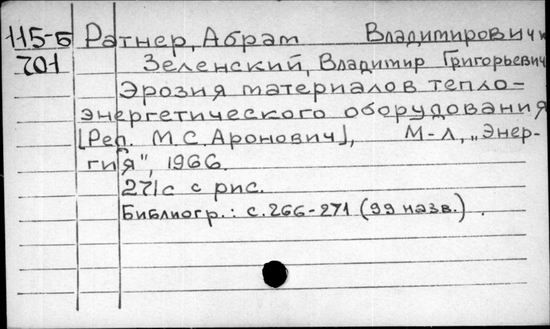 115-5 Ратнер, Абрам Владимирович и
701 Зеленский, Владимир Григорьевич
Эрозия материалов тепло-
энергетического оборудования
[Ред. М.С. Аронович], М-Л, „Энер-
гия", 1966.
271с с рис.
Библиогр.: с. 266-271 (99 назв.).